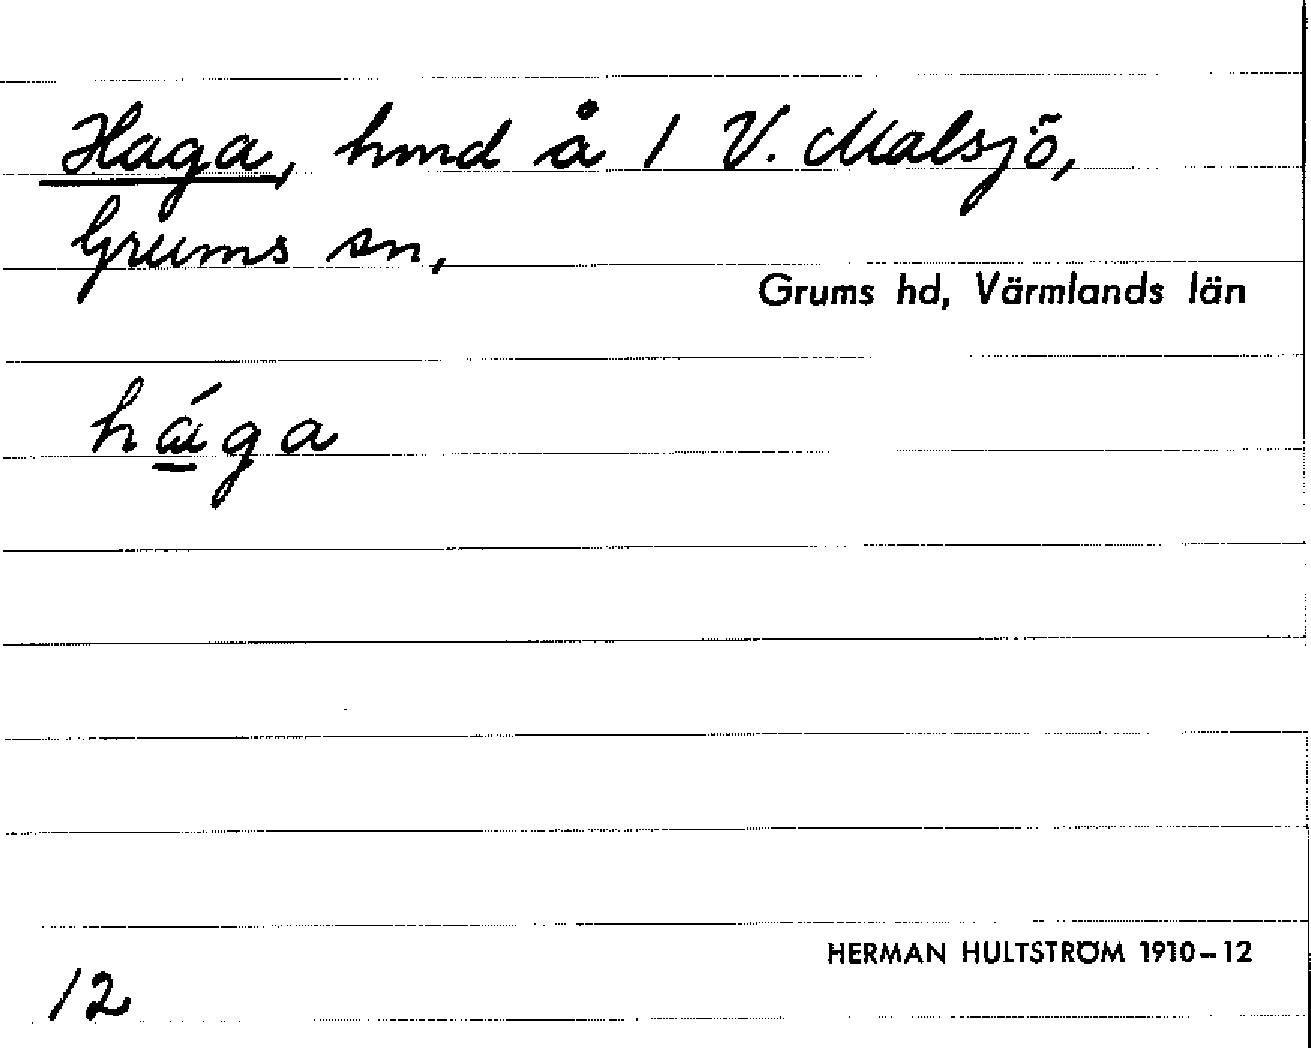 Haga, hmd å 1 V. Malsjö,
Grums sn,
Grums hd, Värmlands län
hága
HERMAN HULTSTRÖM 1910–12
12